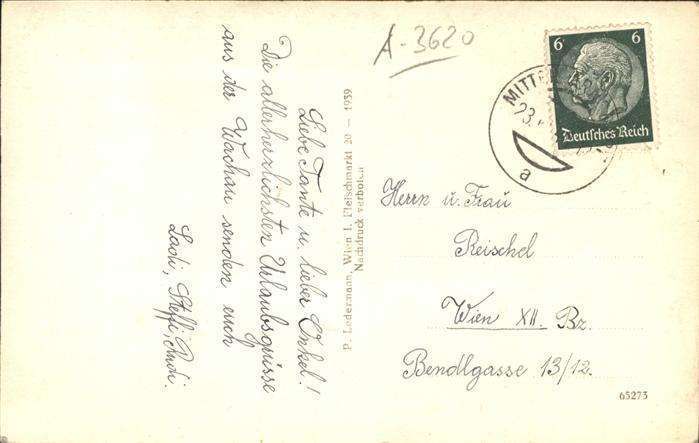 A-3620
Liebe Tante u. lieber Onkel!
Die allerherzlichsten Urlaubsgrüsse
aus der Wachau senden euch
Ladi, Steffi, Rudi.
P. Ledermann, Wien I, Fleischmarkt 20 — 1939
Nachdruck verboten
6 6
Deutsches Reich
MITTER
23.
a
Herrn u. Frau
Reischel
Wien XII. Bz.
Bendlgasse 13/12.
65273